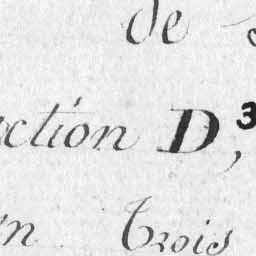 de
ction D, 3
Trois